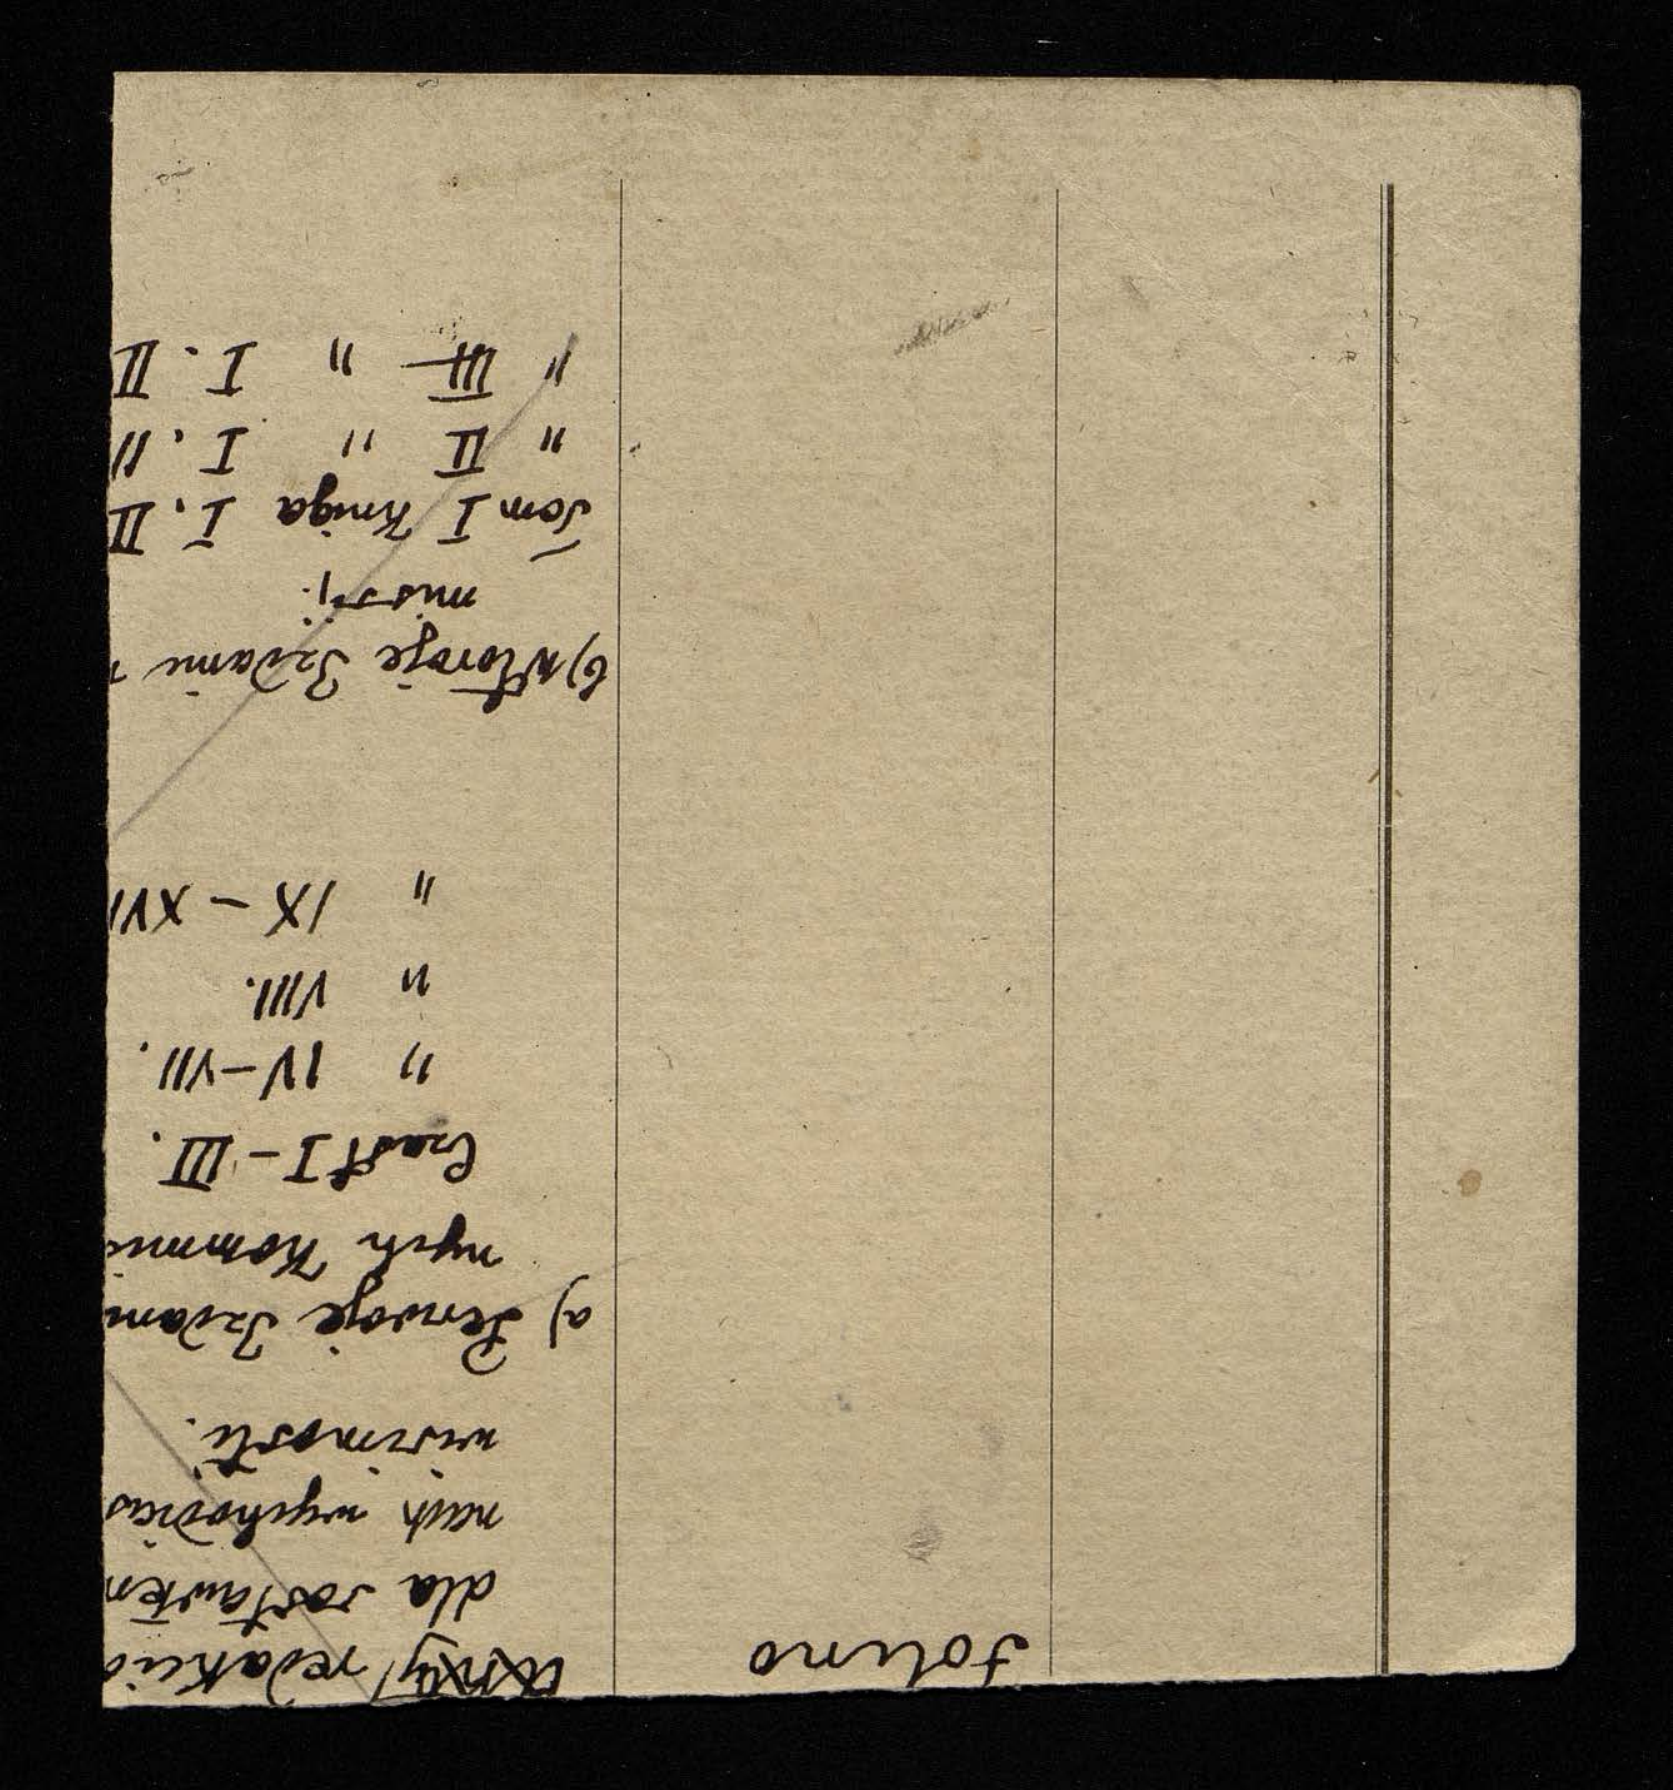 redakcio
folino
dla sostawlen
nach wychodias
wisimosti.
a) Perwoje Izdani
nych Kommis
Czast I - III.
" IV - VII.
" VIII.
" IX - XVI
b) Wtoroje Izdanie
missij.
Tom I Kniga I. II
" II " I. II
" III " I. II